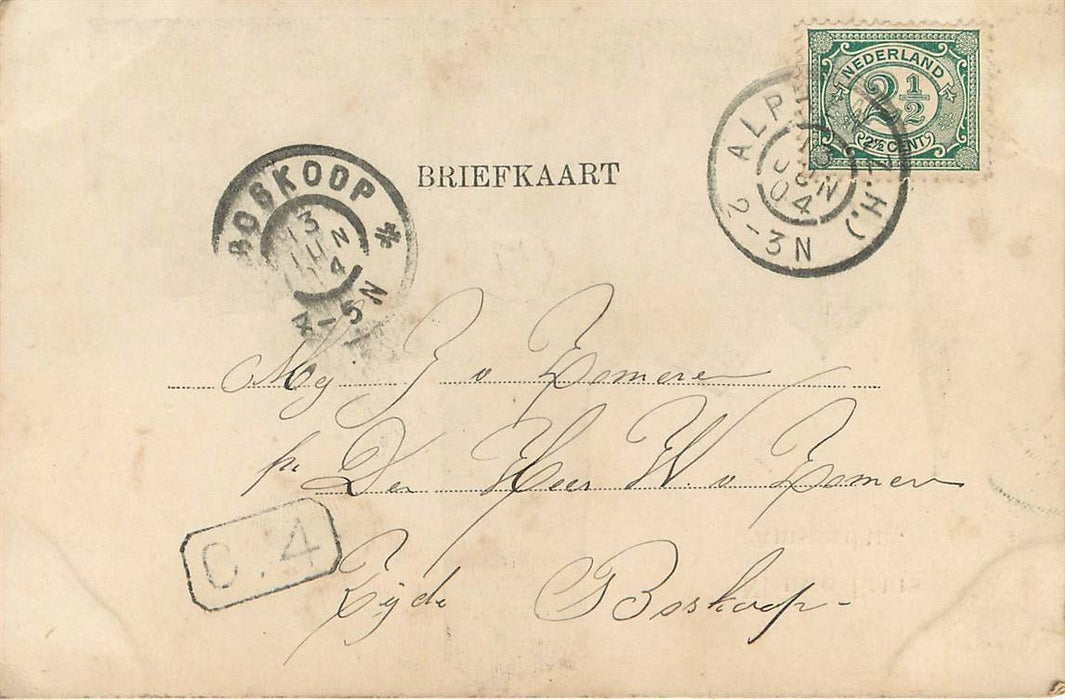 NEDERLAND
2 1/2
2½ CENT
ALPHEN (Z.H.)
13
JUN
04
2-3N
BRIEFKAART
BOSKOOP *
13
JUN
04
4-5N
Mej J v Zomeren
p. Den Heer W. v Zomeren
Zijde Boskoop-
C.4